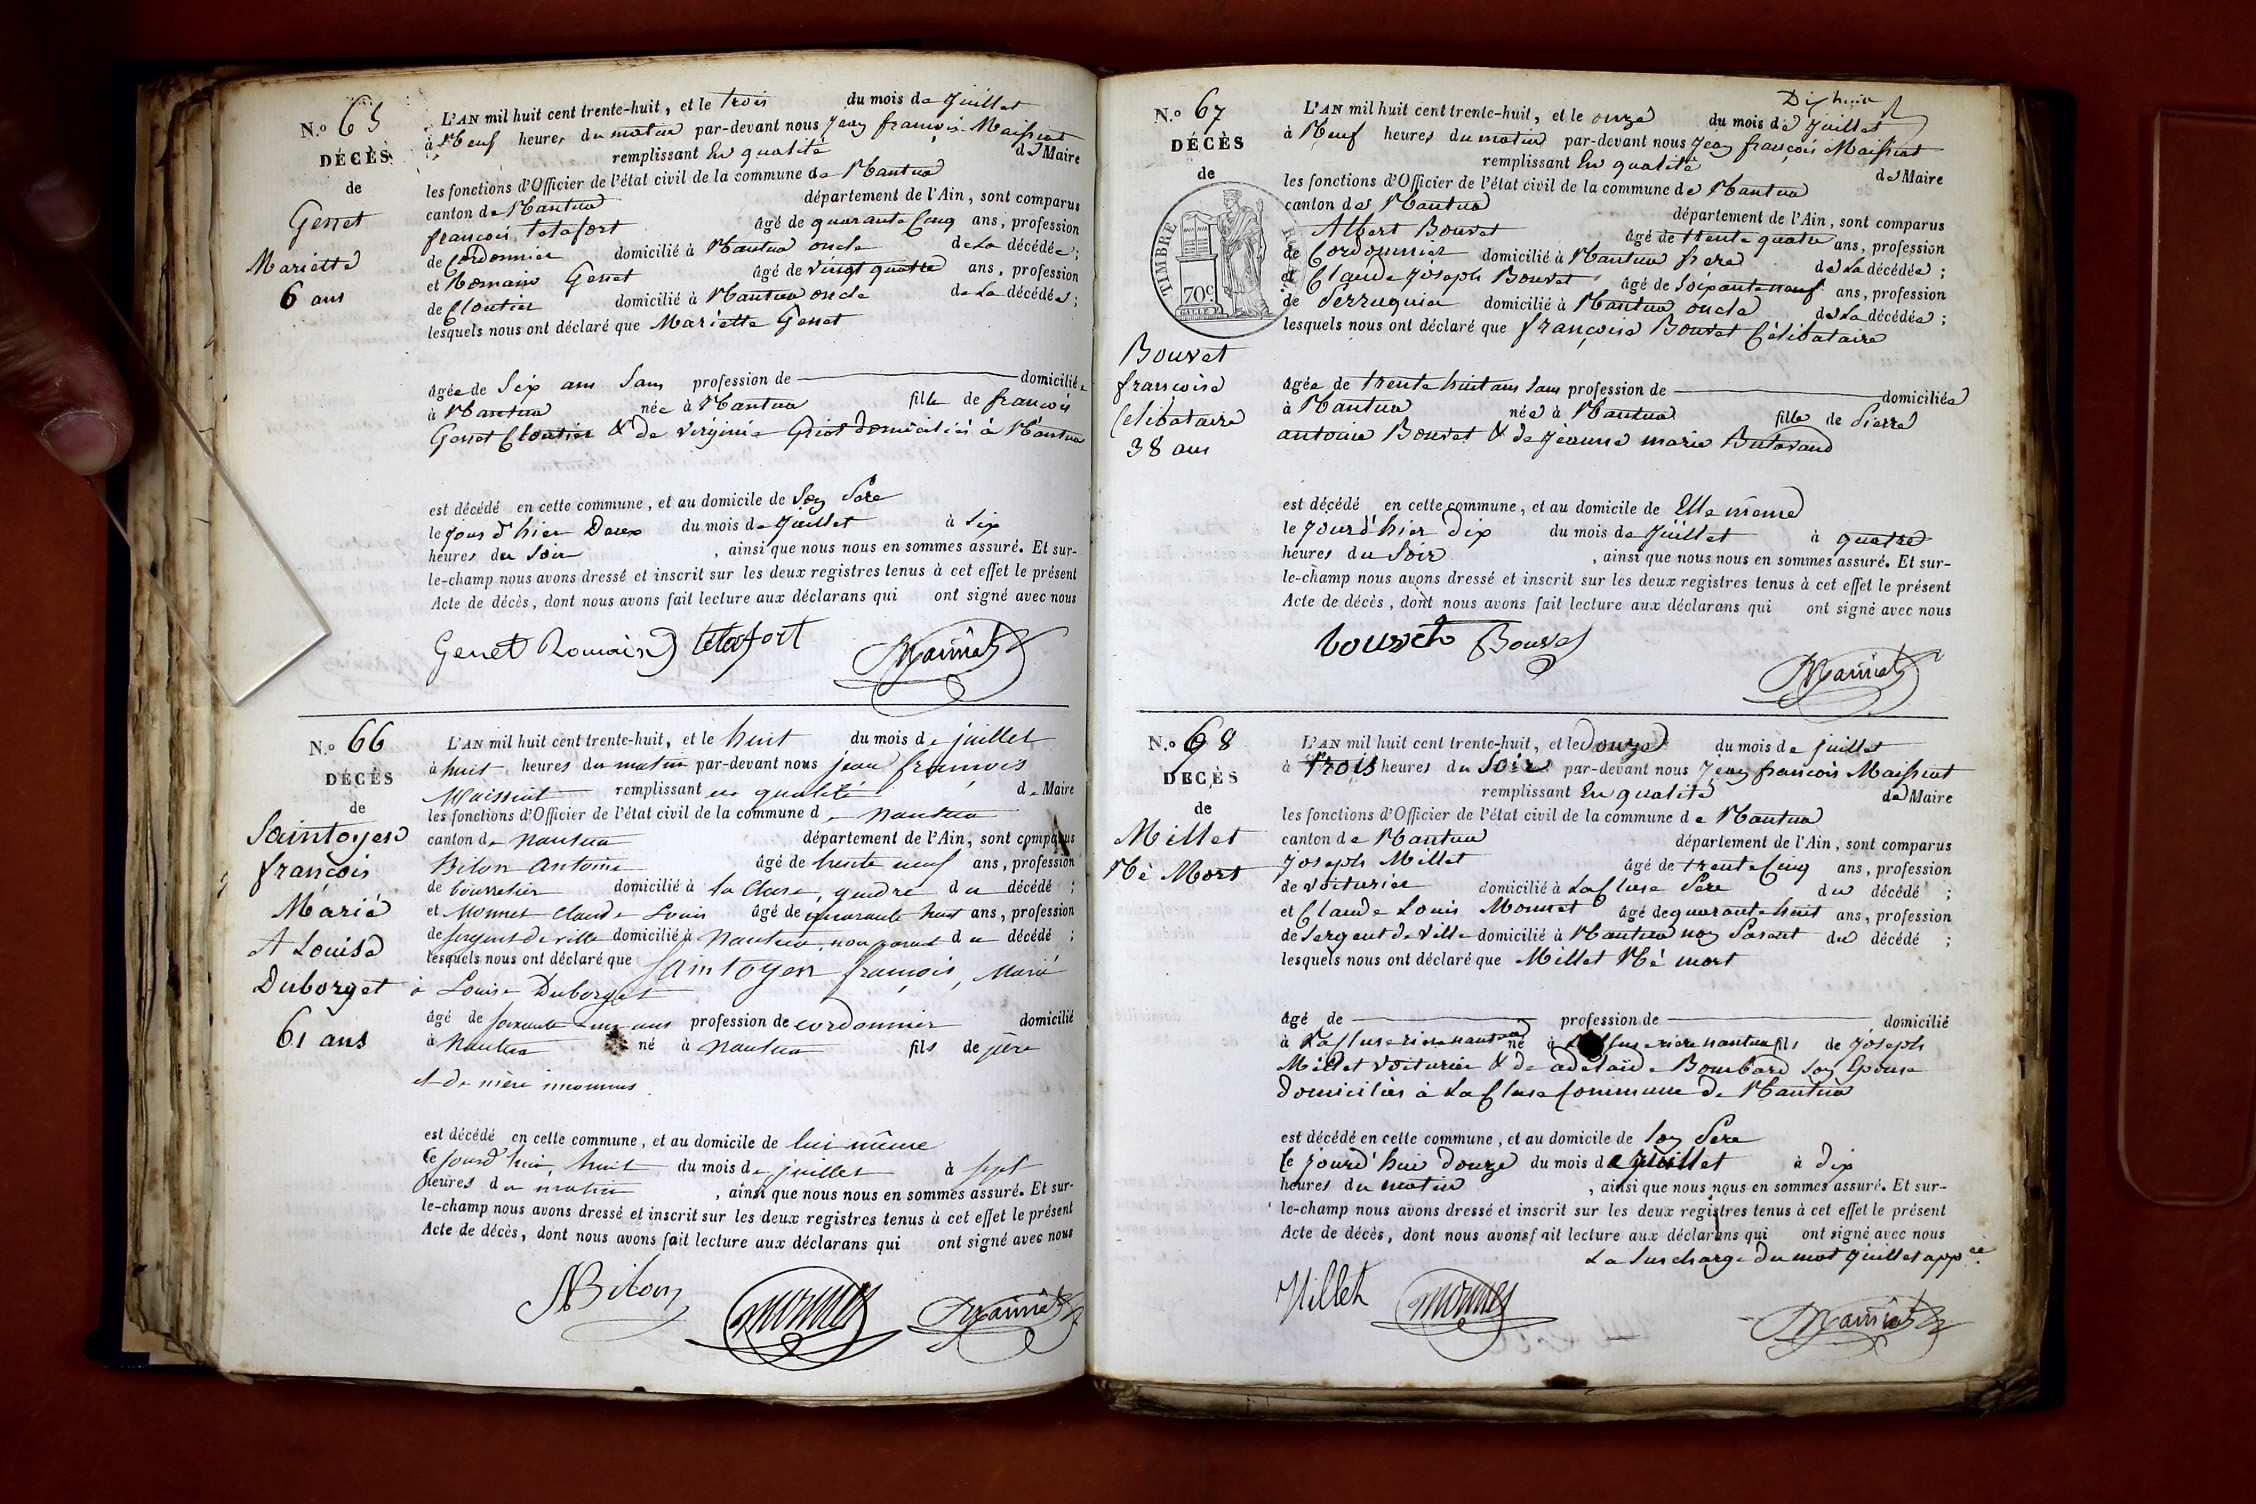 N.o 65
DÉCÈS
de
Genet
Mariette
6 ans
L'AN mil huit cent trente-huit, et le trois du mois de Juillet
à Neuf heures du matin par-devant nous Jean françois Maissiat
remplissant En qualité de Maire
les fonctions d'Officier de l'état civil de la commune de Nantua
canton de Nantua département de l'Ain, sont comparus
françois tetafort âgé de quarante Cinq ans, profession
de Cordonnier domicilié à Nantua oncle de La décédée ;
et Romain Genet âgé de vingt quatre ans, profession
de Cloutier domicilié à Nantua oncle de La décédée ;
lesquels nous ont déclaré que Mariette Genet
âgée de Six ans Sans profession de domiciliée
à Nantua née à Nantua fille de françois
Genet Cloutier & de virginie Griot domiciliés à Nantua
est décédé en cette commune, et au domicile de Son Père
le jour d'hier Deux du mois de Juillet à Six
heures du Soir , ainsi que nous nous en sommes assuré. Et sur-
le-champ nous avons dressé et inscrit sur les deux registres tenus à cet effet le présent
Acte de décès, dont nous avons fait lecture aux déclarans qui ont signé avec nous
Genet Romain tetafort Maissiat
N.o 66
DÉCÈS
de
Saintoyen
françois
Marié
A Louise
Duborget
61 ans
L'AN mil huit cent trente-huit, et le huit du mois de juillet
à huit heures du matin par-devant nous jean françois
Maissiat remplissant en qualité de Maire
les fonctions d'Officier de l'état civil de la commune d nantua
canton de nantua département de l'Ain, sont comparus
Bilon Antoine âgé de trente neuf ans, profession
de bourrelier domicilié à la Cluse, gendre du décédé ;
et Monnet Claude Louis âgé de quarante huit ans, profession
de sergent de ville domicilié à nantua, non parent du décédé ;
lesquels nous ont déclaré que Saintoyen françois, Marié
à Louise Duborget
âgé de soixante un ans profession de cordonnier domicilié
à Nantua né à nantua fils de père
et de mère inconnus
est décédé en cette commune, et au domicile de lui même
le jourd'hui, huit du mois de juillet à sept
heures du matin , ainsi que nous nous en sommes assuré. Et sur-
le-champ nous avons dressé et inscrit sur les deux registres tenus à cet effet le présent
Acte de décès, dont nous avons fait lecture aux déclarans qui ont signé avec nous
ABilon Monnet Maissiat
Dix huit
N.o 67
DÉCÈS
de
TIMBRE
70c
Bouvet
francoise
Celibataire
38 ans
L'AN mil huit cent trente-huit, et le onze du mois de Juillet
à Neuf heures du matin par-devant nous Jean françois Maissiat
remplissant En qualité de Maire
les fonctions d'Officier de l'état civil de la commune de Nantua
canton de Nantua département de l'Ain, sont comparus
Albert Bouvet âgé de trente quatre ans, profession
de Cordonnier domicilié à Nantua frere de La décédée ;
et Claude Joseph Bouvet âgé de Soixante neuf ans, profession
de Perruquier domicilié à Nantua oncle de La décédée ;
lesquels nous ont déclaré que françoise Bouvet Célibataire
âgée de trente huit ans Sans profession de domiciliée
à Nantua née à Nantua fille de Pierre
antoine Bouvet & de Jeanne marie Butavand
est décédé en cette commune, et au domicile de Elle même
le jourd'hier dix du mois de Juillet à quatre
heures du Soir , ainsi que nous nous en sommes assuré. Et sur-
le-champ nous avons dressé et inscrit sur les deux registres tenus à cet effet le présent
Acte de décès, dont nous avons fait lecture aux déclarans qui ont signé avec nous
bouvet Bouvet
Maissiat
N.o 68
DÉCÈS
de
Millet
Né Mort
L'AN mil huit cent trente-huit, et le Douze du mois de juillet
à trois heures du Soir par-devant nous Jean françois Maissiat
remplissant En qualité de Maire
les fonctions d'Officier de l'état civil de la commune de Nantua
canton de Nantua département de l'Ain, sont comparus
Joseph Millet âgé de trente Cinq ans, profession
de voiturier domicilié à La Cluse Père du décédé ;
et Claude Louis Monnet âgé de quarante huit ans, profession
de Sergent de ville domicilié à Nantua non Parent du décédé ;
lesquels nous ont déclaré que Millet Né mort
âgé de profession de domicilié
à La Cluse né à fils de Joseph
Millet voiturier & de adelaïde Bombard Son Epouse
domiciliés à La Cluse Commune de Nantua
est décédé en cette commune, et au domicile de Son Père
le jourd'hui douze du mois de Juillet à dix
heures du matin , ainsi que nous nous en sommes assuré. Et sur-
le-champ nous avons dressé et inscrit sur les deux registres tenus à cet effet le présent
Acte de décès, dont nous avons fait lecture aux déclarans qui ont signé avec nous
La Surcharge du mot Juillet appée
Millet Monnet Maissiat